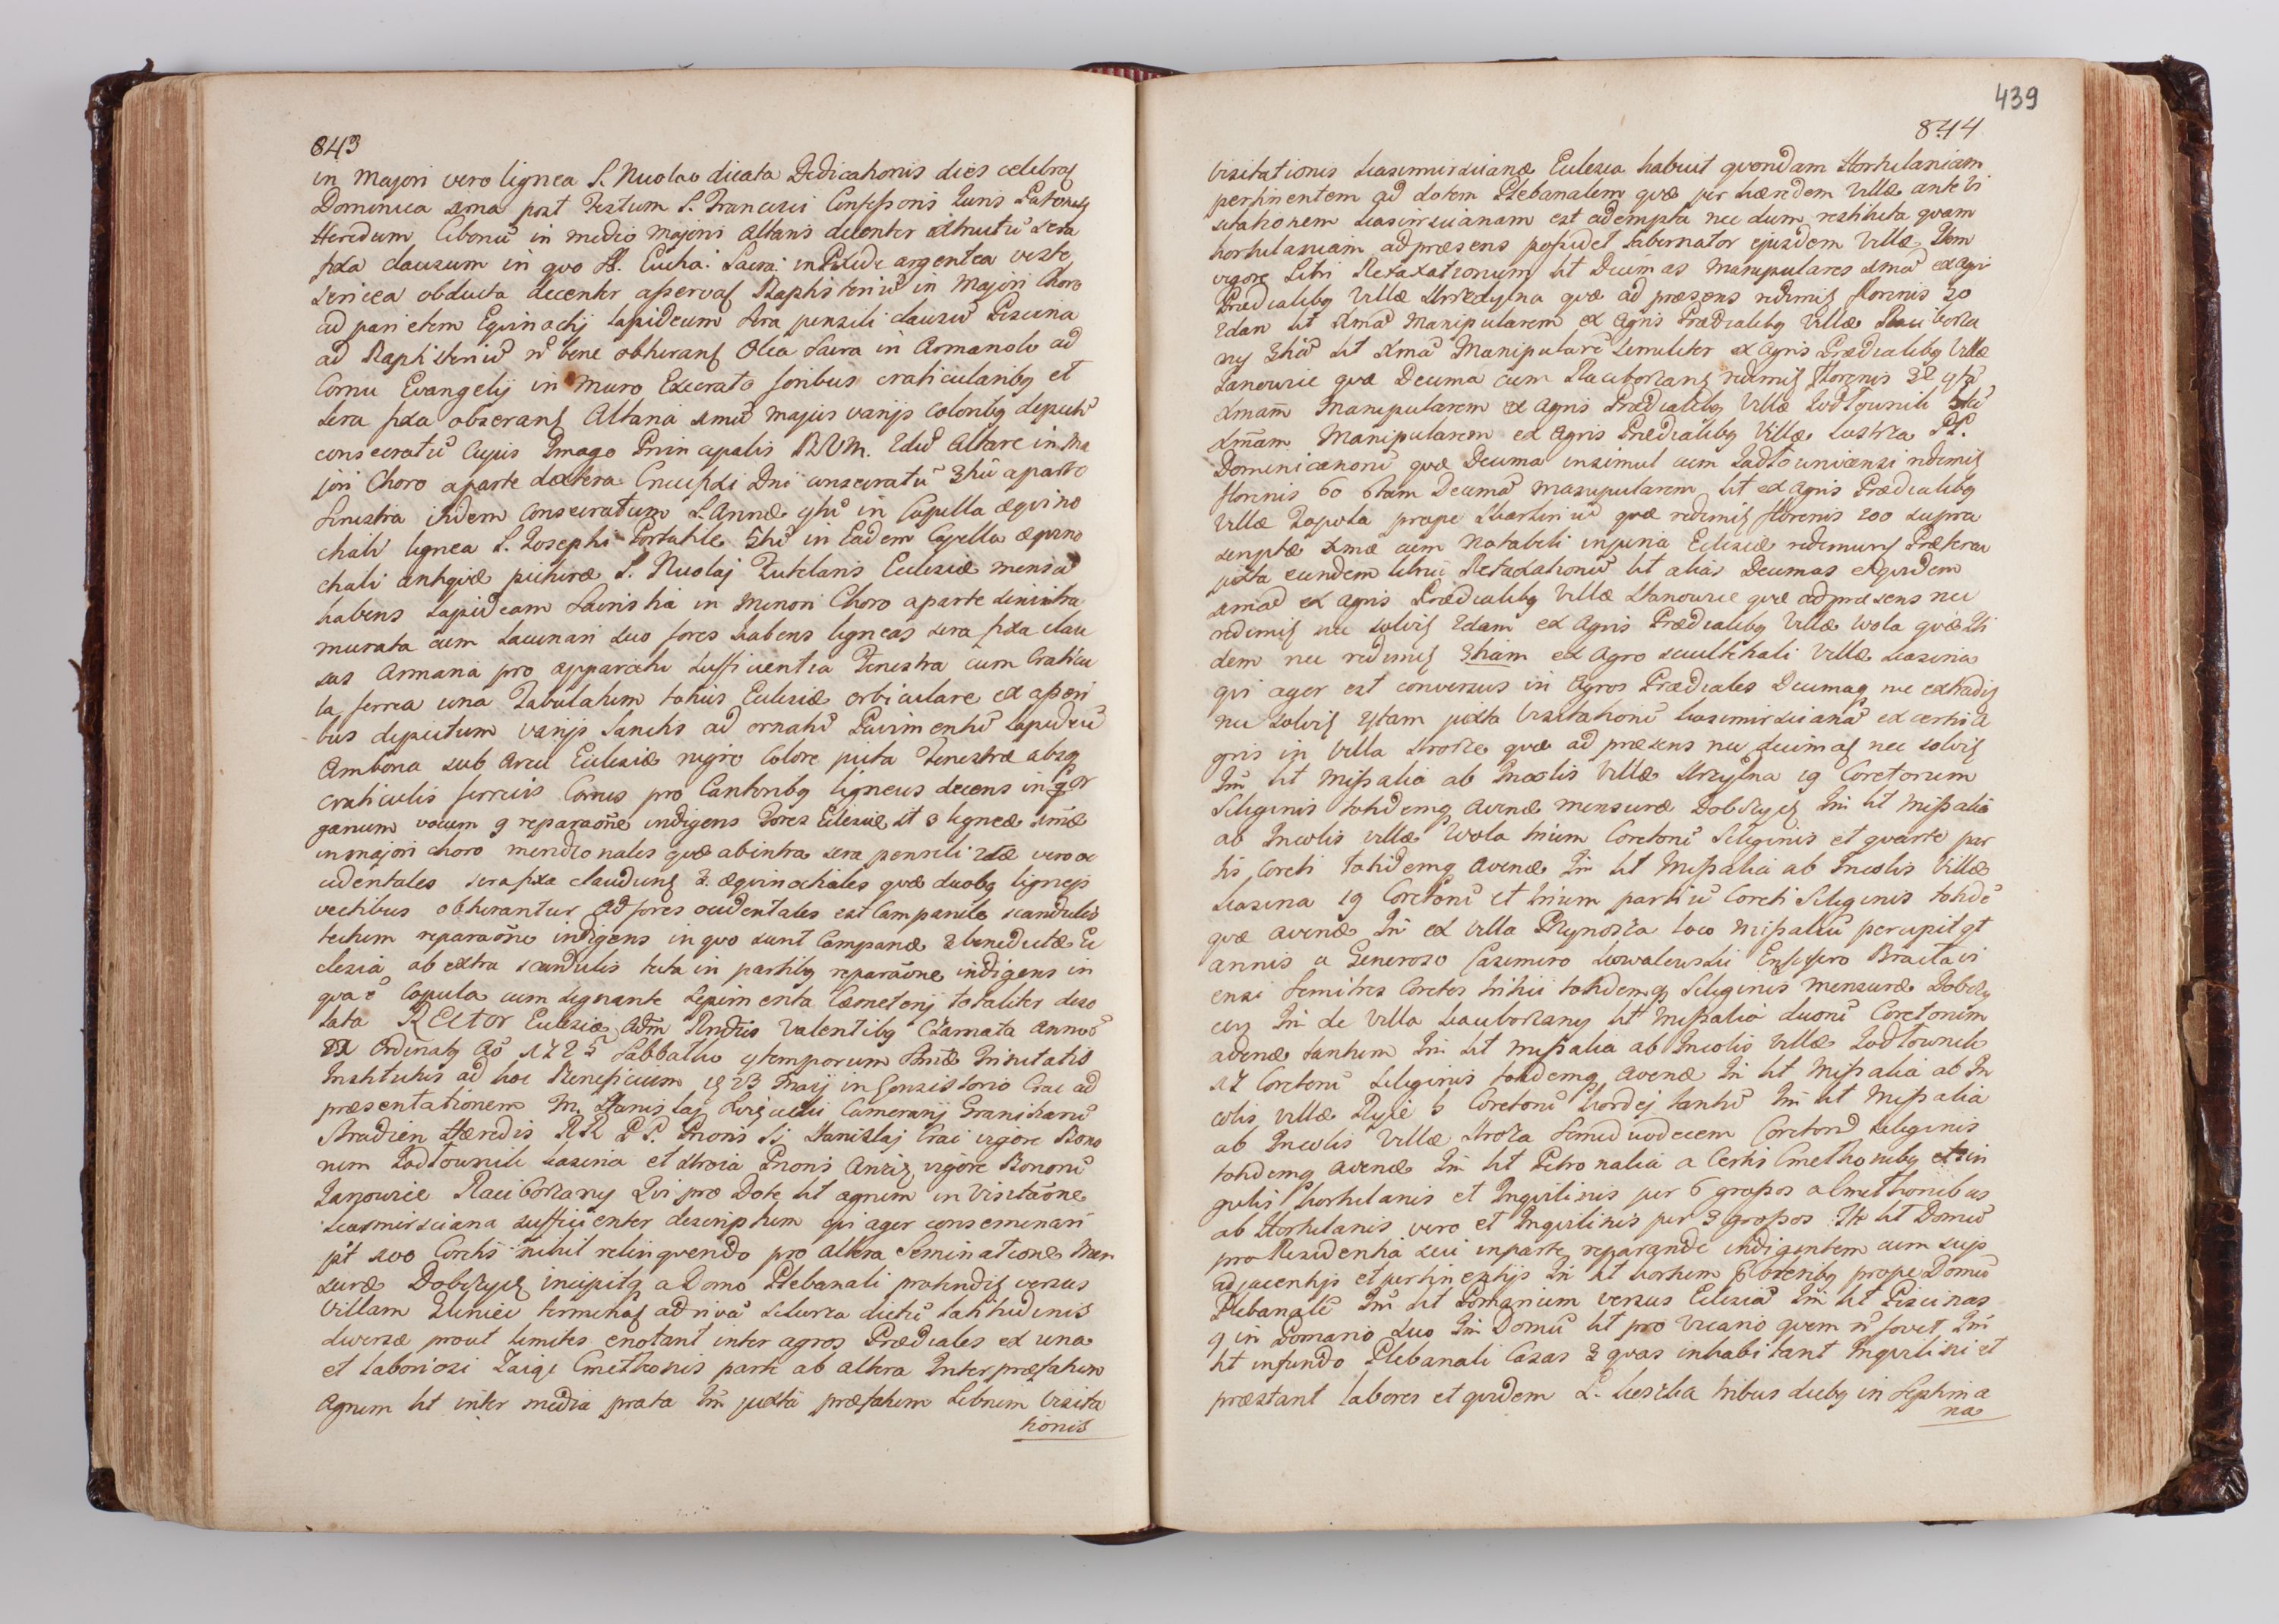 843
in majori vero lignea S. Nicolao dicata Dedicationis dies celebraʒ
Dominica 1ma post Festum S. Francisci Confessoris Juris Patronʒ
Heredum Ciboriũ in medio majoris altaris decenter extructũ sera
fixa clausum in quo SS. Eucha: Sacra: in Pixide argentea veste
sericea obducta decenter asservaʒ Baptisteriũ in majori Choro
ad parietem Eqvinoctij lapideum sera pensili clausũ Piscina
ad Baptisteriũ ñ bene obseranʒ Olea Sacra in Armariolo ad
Cornu Evangelij in muro Excavato foribus craticularibq et
sera fixa obseranʒ Altaria 1mũ majus varijs coloribq depictũ
consecratũ cujus Imago Principalis BVM. 2dũ Altare in ma
jori Choro a parte dextera Crucifixi Dni consecratũ 3tiũ a parte
sinistra itidem consecratum S. Annæ 4tũ in Capella æqvino
ctiali lignea S. Josephi Portatile 5tũ in Eadem Capella æqvino
ctiali antiqvæ picturæ S. Nicolaj Tutelaris Ecclesiæ mensã
habens lapideam Sacristia in minori Choro a parte sinistra
murata cum lacunari suo fores habens ligneas sera fixa clau
sas armaria pro apparatu sufficientia Fenestra cum Craticu
la ferrea una Tabulatum totius Ecclesiæ orbiculare ex asseri
bus depictum varijs Sanctis ad ornatũ Pavimentũ lapideũ
Ambona sub Arcu Ecclesiæ nigro Colore picta Fenestræ absq
craticulis ferreis Corus pro Cantoribq ligneus decens in q or
ganum vocum 9 reparaone indigens Fores Ecclesiæ st 3 ligneæ 1mæ
in majori choro meridionales qvæ ab intra sera pensili 2dæ vero oc
cidentales sera fixa claudunʒ 3. æqvinoctiales qvæ duobq ligneis
vectibus obserantur Ad fores occidentales est Campanile scandulis
tectum reparaone indigens in quo sunt Campanæ 2 benedictæ Ec
clesia ab extra scandulis tecta in partibq reparaone indigens in
qva ẽ Copula cum Signante Sepimenta Cæmeterij totaliter deso
lata REctor Ecclesiæ Adm Rndus Valentibq Czarnata annorũ
Ordinatq Aõ 1725 Sabbatho 4temporum SSmæ Trinitatis
Institutus ad hoc Beneficium 1923 Maij in Consistorio Crac ad
præsentationem M. Stanislaj Camerarij Granitiarũ
Siradien Hæredis RR PP. Prioris S. Stanislaj Crac vigore Bono
rum Łodtownik Łasina et Stroia Prioris vigore Bonorũ
Janowice Raciborzany Qvi pro Dote ht agrum in Visitaone
Kazimirsciana sufficienter descriptum qvi ager conseminari
pt 200 Coretis nihil relinqvendo pro altera Seminatione men
suræ Dobczyceʒ incipitq a Domo Plebanali protendiʒ versus
Villam Gruniec terminaʒ ad rivã dictũ latitudinis
diversæ prout limites enotant inter agros Prædiales ex una
et laboriosi Zaige Cmethonis parte ab altera Inter præfatum
Agrum ht inter media prata Itm juxta præfatum Librum Visita
tionis
439
844
Visitationis Kazimirscianæ Ecclesia habuit qvondam Hortulaniam
pertinentem ad dotem Plebanalem qvæ per hæredem Villæ ante Vi
sitationem Kazimirscianam est adempta nec dum restituta qvam
hortulaniam ad præsens possidet Tabernator ejusdem Villæ Item
vigore Libri Retaxationum ht Decimas manipulares 1mã ex agri
Prædialibq Villæ qvæ ad præsens redimiʒ florenis 30
2dam ht Xmã Manipularem ex agris Prædialibq Villæ Raciborza
ny 3tiã ht Xmã Manipularẽ similiter ex agris Prædialibq Villæ
Janowice qvæ Decima cum Raciborzanʒ redimiʒ florenis 32 4tã
Xmam Manipularem ex agris Prædialibq Villæ Łodtownik 5tã
Xmam Manipularem ex Agris Prædialibq Villæ Lostka PP.
Dominicanorũ qvæ Decima insimul cum Łodtownicensi redimiʒ
florenis 60 6tam Decimã manipularem ht ex agris Prædialibq
Villæ Zapota prope qvæ redimiʒ florenis 200 supra
scriptæ Xmæ cum notabili injuria Ecclesiæ redimunʒ Præterea
juxta eundem librũ Retaxationũ ht alias Decimas et qvidem
1mã ex agris Prædialibq Villæ qvæ ad præsens nec
redimiʒ nec solviʒ 2dam ex Agris Prædialibq Villæ Wola qvæ iti
dem nec redimiʒ 3tiam ex Agro scultetiali Villæ Łasina
qvi ager est conversus in Agros Prædiales Decimaq nec extradiʒ
nec solviʒ 4tam juxta Visitationẽ Kazimirscianã ex certis a
gris in Villa Stroza qvæ ad præsens nec decimaʒ nec solviʒ
Itm ht Missalia ab Incolis Villæ 19 Coretorum
Siliginis totidemq avenæ mensuræ Dobczyceʒ Itm ht Missalia
ab Incolis villæ Wola trium Coretorũ Siliginis et qvartæ par
tis Coreti totidemq Avenæ Itm ht Missalia ab Incolis Villæ
Łasina 19 Coretorũ et trium partiũ Coreti Siliginis totidẽ
qvæ avenæ Itm ex villa Rynoska loco missaliũ percipit qt
annis a Generoso Casimiro Kowalewski Ensifero Braclavi
ensi Semitres Coretos tritici totidemq Siliginis mensuræ Dobczy
ceʒ Itm de Villa Raciborzany ht Missalia duorũ Coretorum
avenæ tantum Itm ht missalia ab Incolis Villæ Łodtownik
17 Coretorũ Siliginis totidemq avenæ Itm ht Missalia ab In
colis villæ Ryie 6 Coretorũ hordej tantũ Itm ht Missalia
ab Incolis Villæ Stroza Semiduodecem Coretorũ Siliginis
totidemq avenæ Itm ht Petronalia a Certis Cmethonibq et sin
gulis hortulanis et Inqvilinis per 6 grossos a Cmethonibus
ab Hortulanis vero et Inqvilinis per 3 grossos Ite ht Domũ
pro Residentia sui in parte reparande indigentem cum suis
adjacentijs et pertinentijs Itm ht hortum prope Domũ
Plebanalẽ Itm ht Pomarium versus Ecclesiã Itm ht Piscinas
9 in Pomario suo Itm Domũ ht pro Vicario qvem ñ fovet Itm
ht in fundo Plebanali Casas 3 qvas inhabitant Inqvilini et
præstant labores et qvidem L. tribus diebq in Septima
na